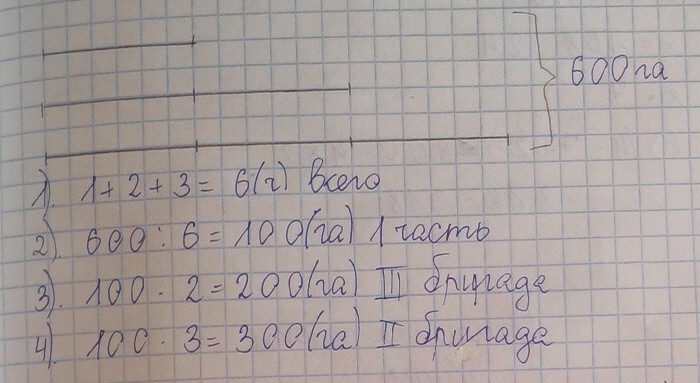 600 га
1). 1 + 2 + 3 = 6(ч) всего
2). 600 : 6 = 100(га) 1 часть
3). 100 · 2 = 200(га) III бригада
4). 100 · 3 = 300(га) II бригада